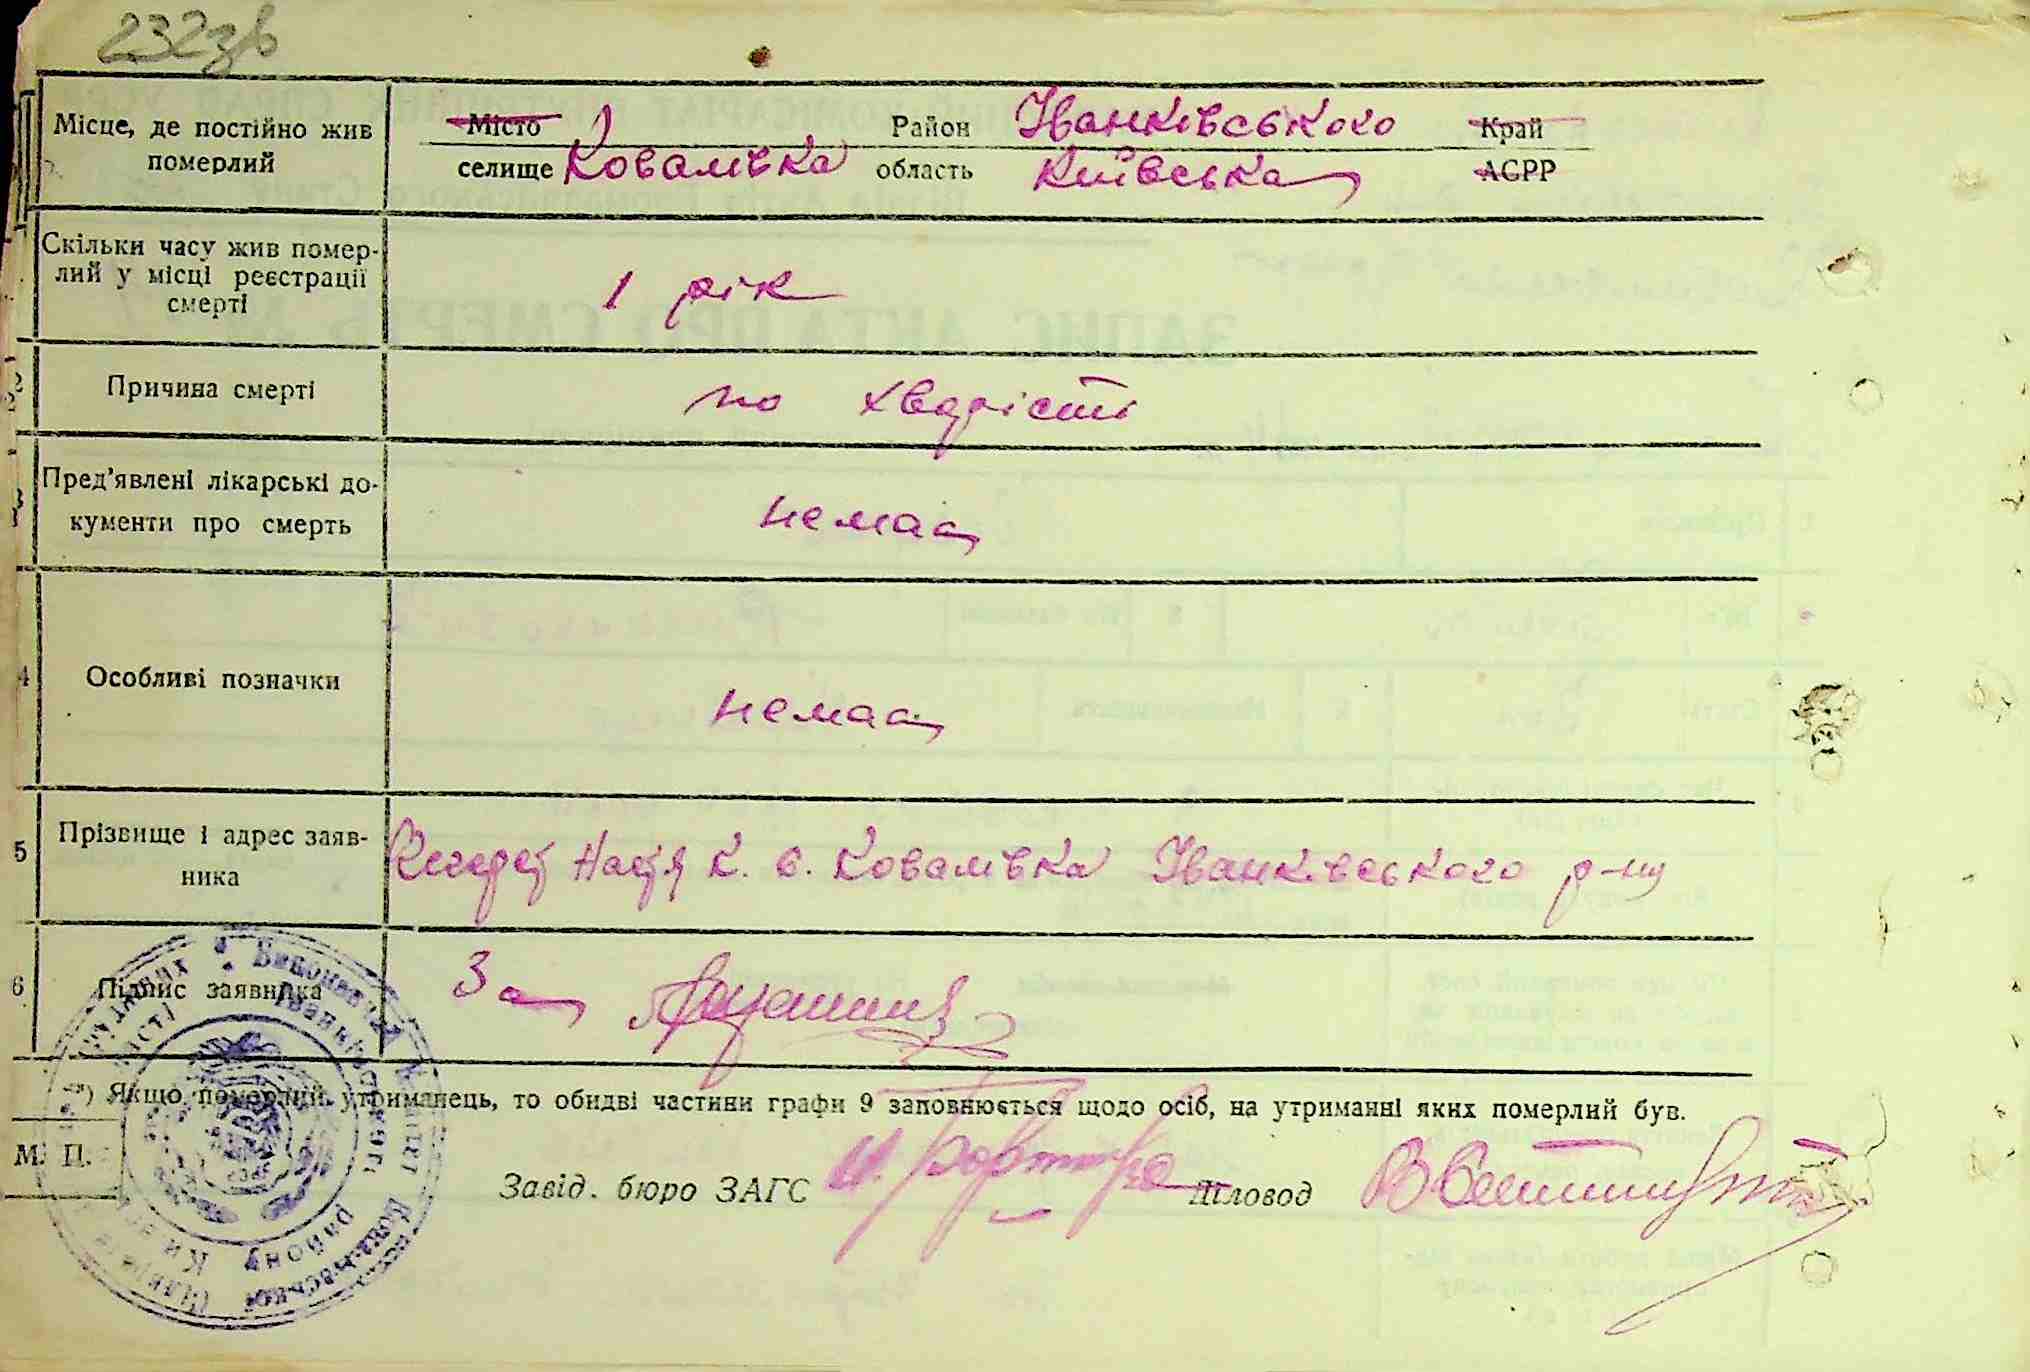 232зв
Місце, де постійно жив померлий
Місто
Район Іванківського
Край
селище Ковалівка область Київська АСРР
Скільки часу жив померлий у місці реєстрації смерті
1 рік
Причина смерті
по хварісті
Пред'явлені лікарські документи про смерть
немає
4
Особливі позначки
немає
5
Прізвище і адрес заявника
Настя К. с. Ковалівка Іванківського р-ну
6
Підпис заявника
За
*) Якщо померлий утриманець, то обидві частини графи 9 заповнюється щодо осіб, на утриманні яких померлий був.
М. П.
Завід. бюро ЗАГС
Діловод